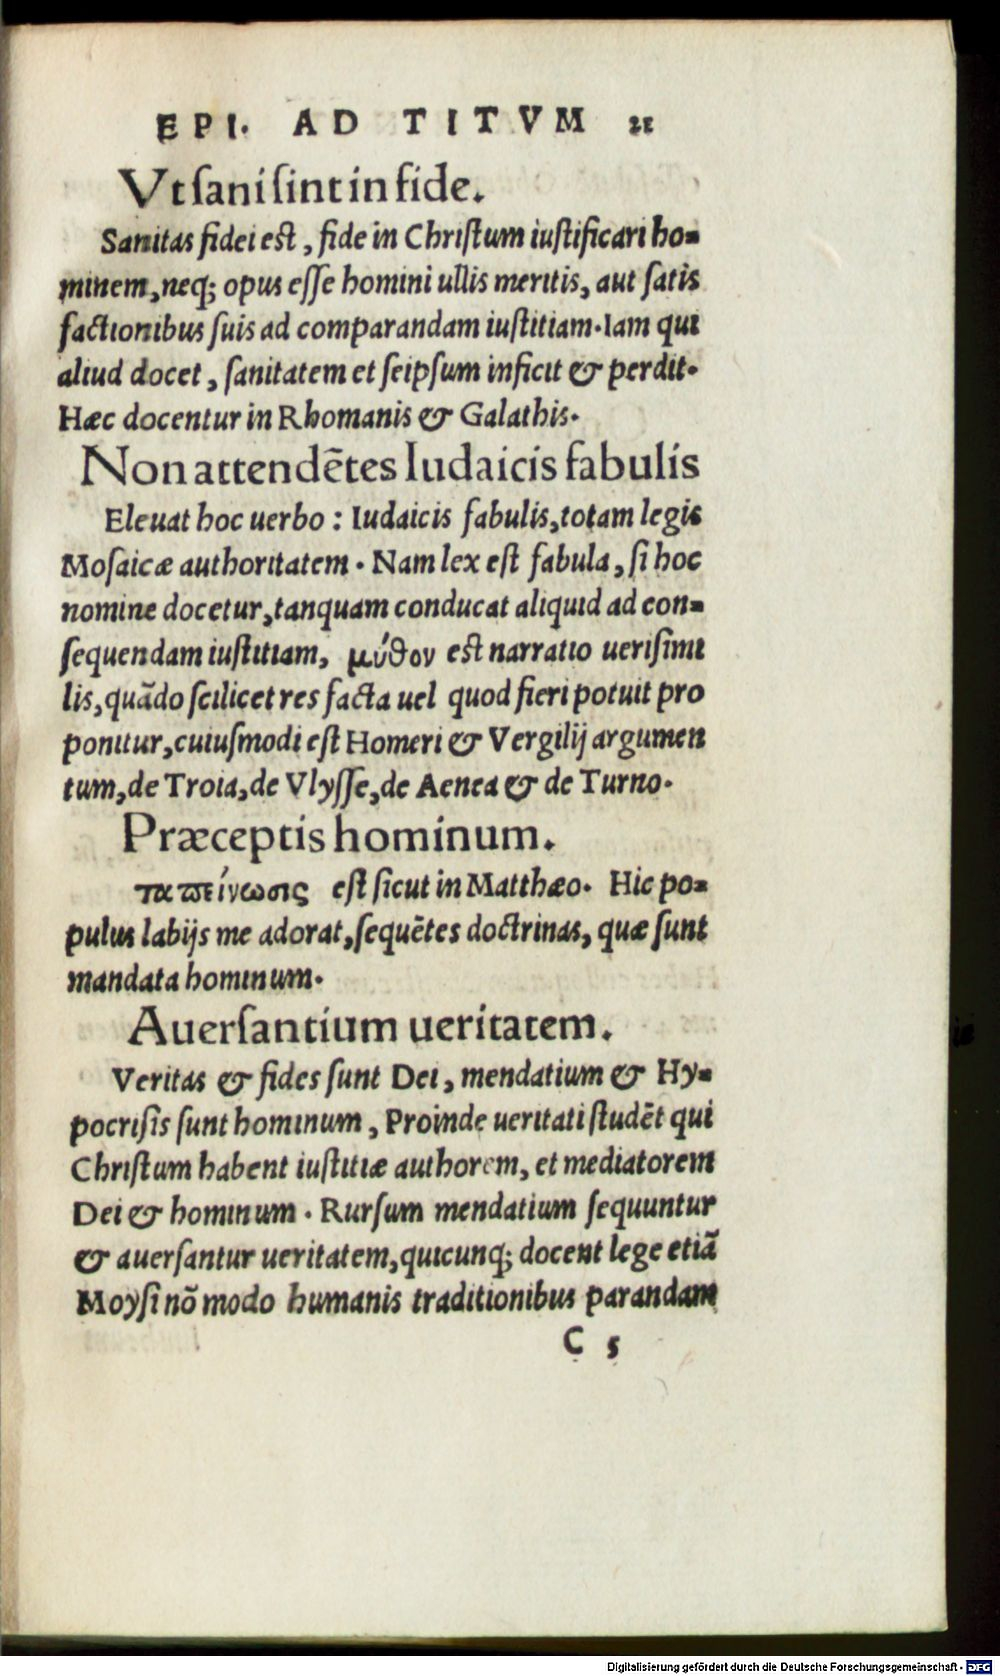 EPI. AD TITVM 21
Vt sani sint in fide.
Sanitas fidei est, fide in Christum iustificari ho-
minem, neq; opus esse homini ullis meritis, aut satis
factionibus suis ad comparandam iustitiam. Iam qui
aliud docet, sanitatem et seipsum inficit & perdit.
Hæc docentur in Rhomanis & Galathis.
Non attendētes Iudaicis fabulis
Eleuat hoc uerbo: Iudaicis fabulis, totam legis
Mosaicæ authoritatem. Nam lex est fabula, si hoc
nomine docetur, tanquam conducat aliquid ad con-
sequendam iustitiam, μύθον est narratio uerisimi
lis, quādo scilicet res facta uel quod fieri potuit pro
ponitur, cuiusmodi est Homeri & Vergilij argumen
tum, de Troia, de Vlysse, de Aenea & de Turno.
Præceptis hominum.
ταπείνωσις est sicut in Matthæo. Hic po-
pulus labijs me adorat, sequētes doctrinas, quæ sunt
mandata hominum.
Auersantium ueritatem.
Veritas & fides sunt Dei, mendatium & Hy-
pocrisis sunt hominum, Proinde ueritati studēt qui
Christum habent iustitiæ authorem, et mediatorem
Dei & hominum. Rursum mendatium sequuntur
& auersantur ueritatem, quicunq; docent lege etiā
Moysi nō modo humanis traditionibus parandam
C 5
Digitalisierung gefördert durch die Deutsche Forschungsgemeinschaft - DFG